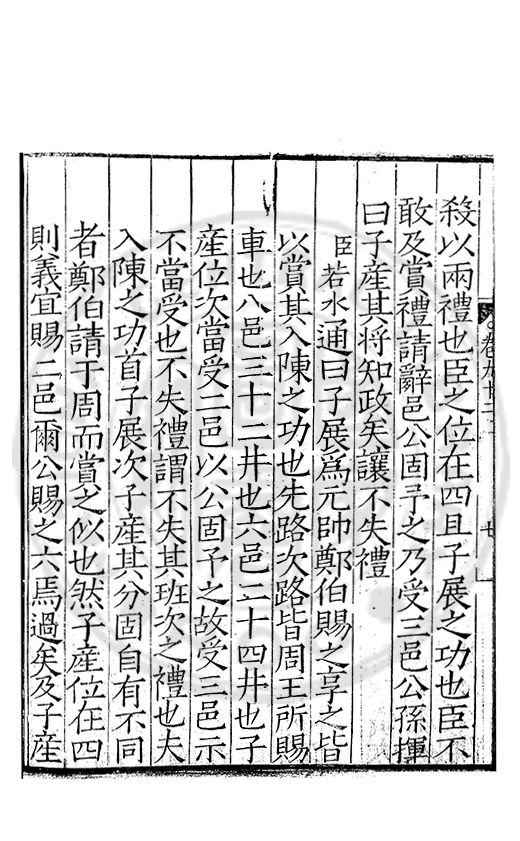 卷九十二
七
殺以兩禮也臣之位在四且子展之功也臣不
敢及賞禮請辭邑公固予之乃受三邑公孫揮
曰子產其将知政矣讓不失禮
臣若水通曰子展爲元帥鄭伯賜之享之皆
以賞其入陳之功也先路次路皆周王所賜
車也八邑三十二井也六邑二十四井也子
產位次當受二邑以公固予之故受三邑示
不當受也不失禮謂不失其班次之禮也夫
入陳之功首子展次子產其分固自有不同
者鄭伯請于周而賞之似也然子產位在四
則義宜賜二邑爾公賜之六焉過矣及子產